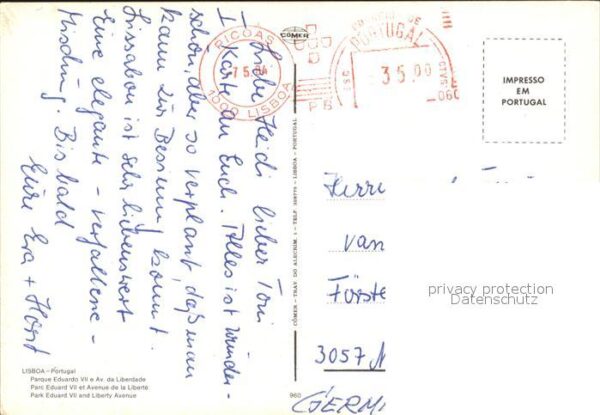 Liebe Heidi lieber Toni
1 Karte an Euch. Alles ist wunder-
schön, aber so verplant, daß man
kaum zur Besinng kommt.
Lissabon ist sehr liebenswert
Eine elegante - verfallene -
Mischung. Bis bald
Eure Eva + Horst
PICOAS
7 5.84
1000 LISBOA
CÓMER
CORREIO DE
PORTUGAL
35.00
P B
IMPRESSO
EM
PORTUGAL
CÓMER - TRAV DO ALECRIM, 1 - TELF - LISBOA - PORTUGAL
Herrn
van
Förste
3057 N
GERM
privacy protection
Datenschutz
LISBOA - Portugal
Parque Eduardo VII e Av. da Liberdade
Parc Eduard VII et Avenue de la Liberté
Park Eduard VII and Liberty Avenue
960